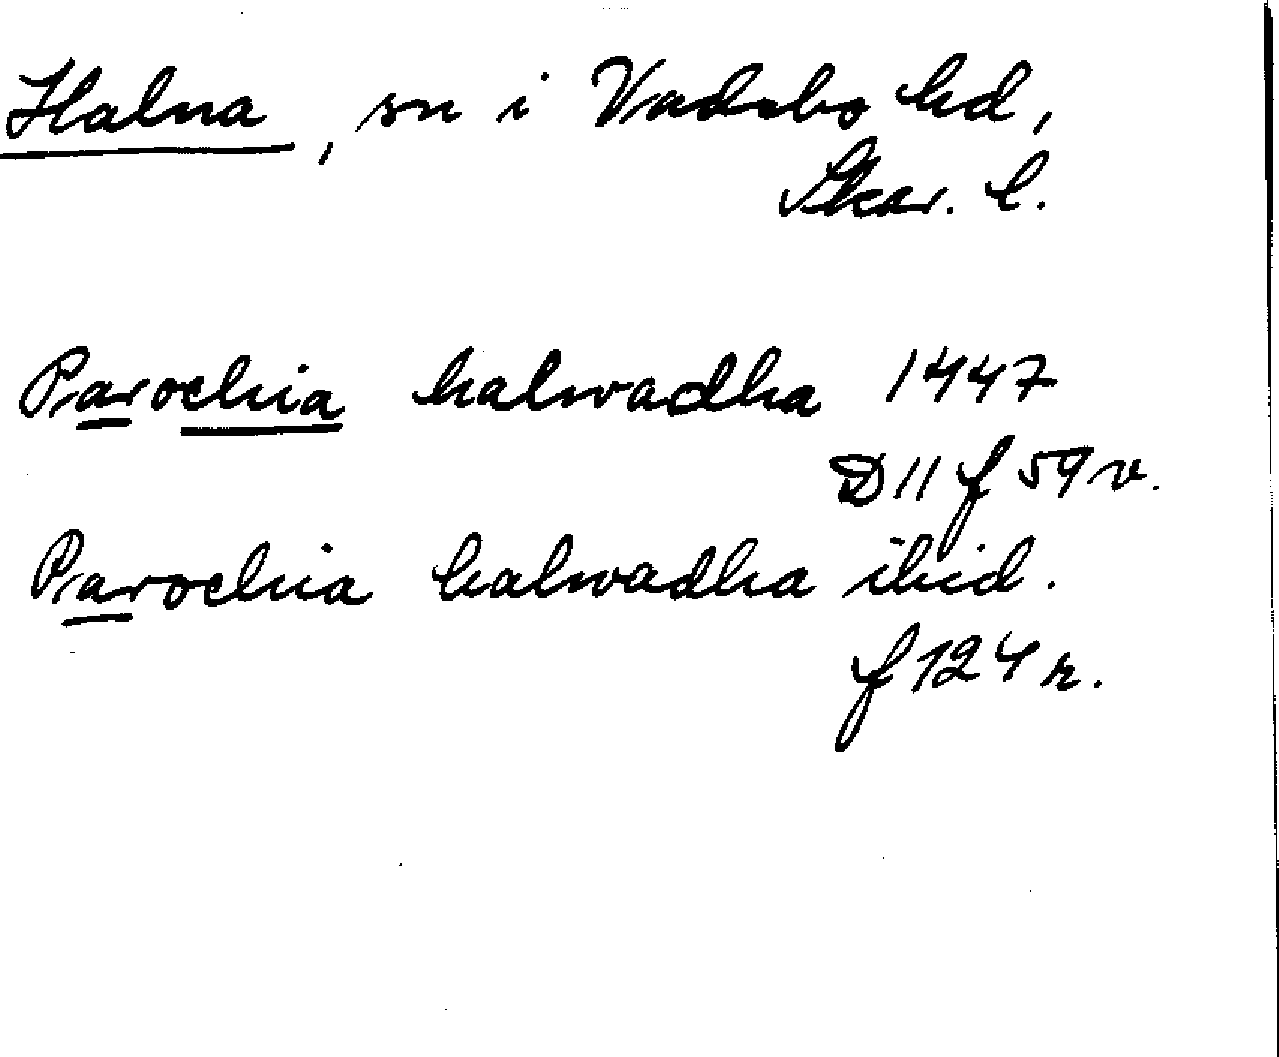 Halna, sn i Vadsbo hd,
Skar. l.
Parochia halwadha 1447
D 11 f 59 v.
Parochia halwadha ibid.
f 124 r.